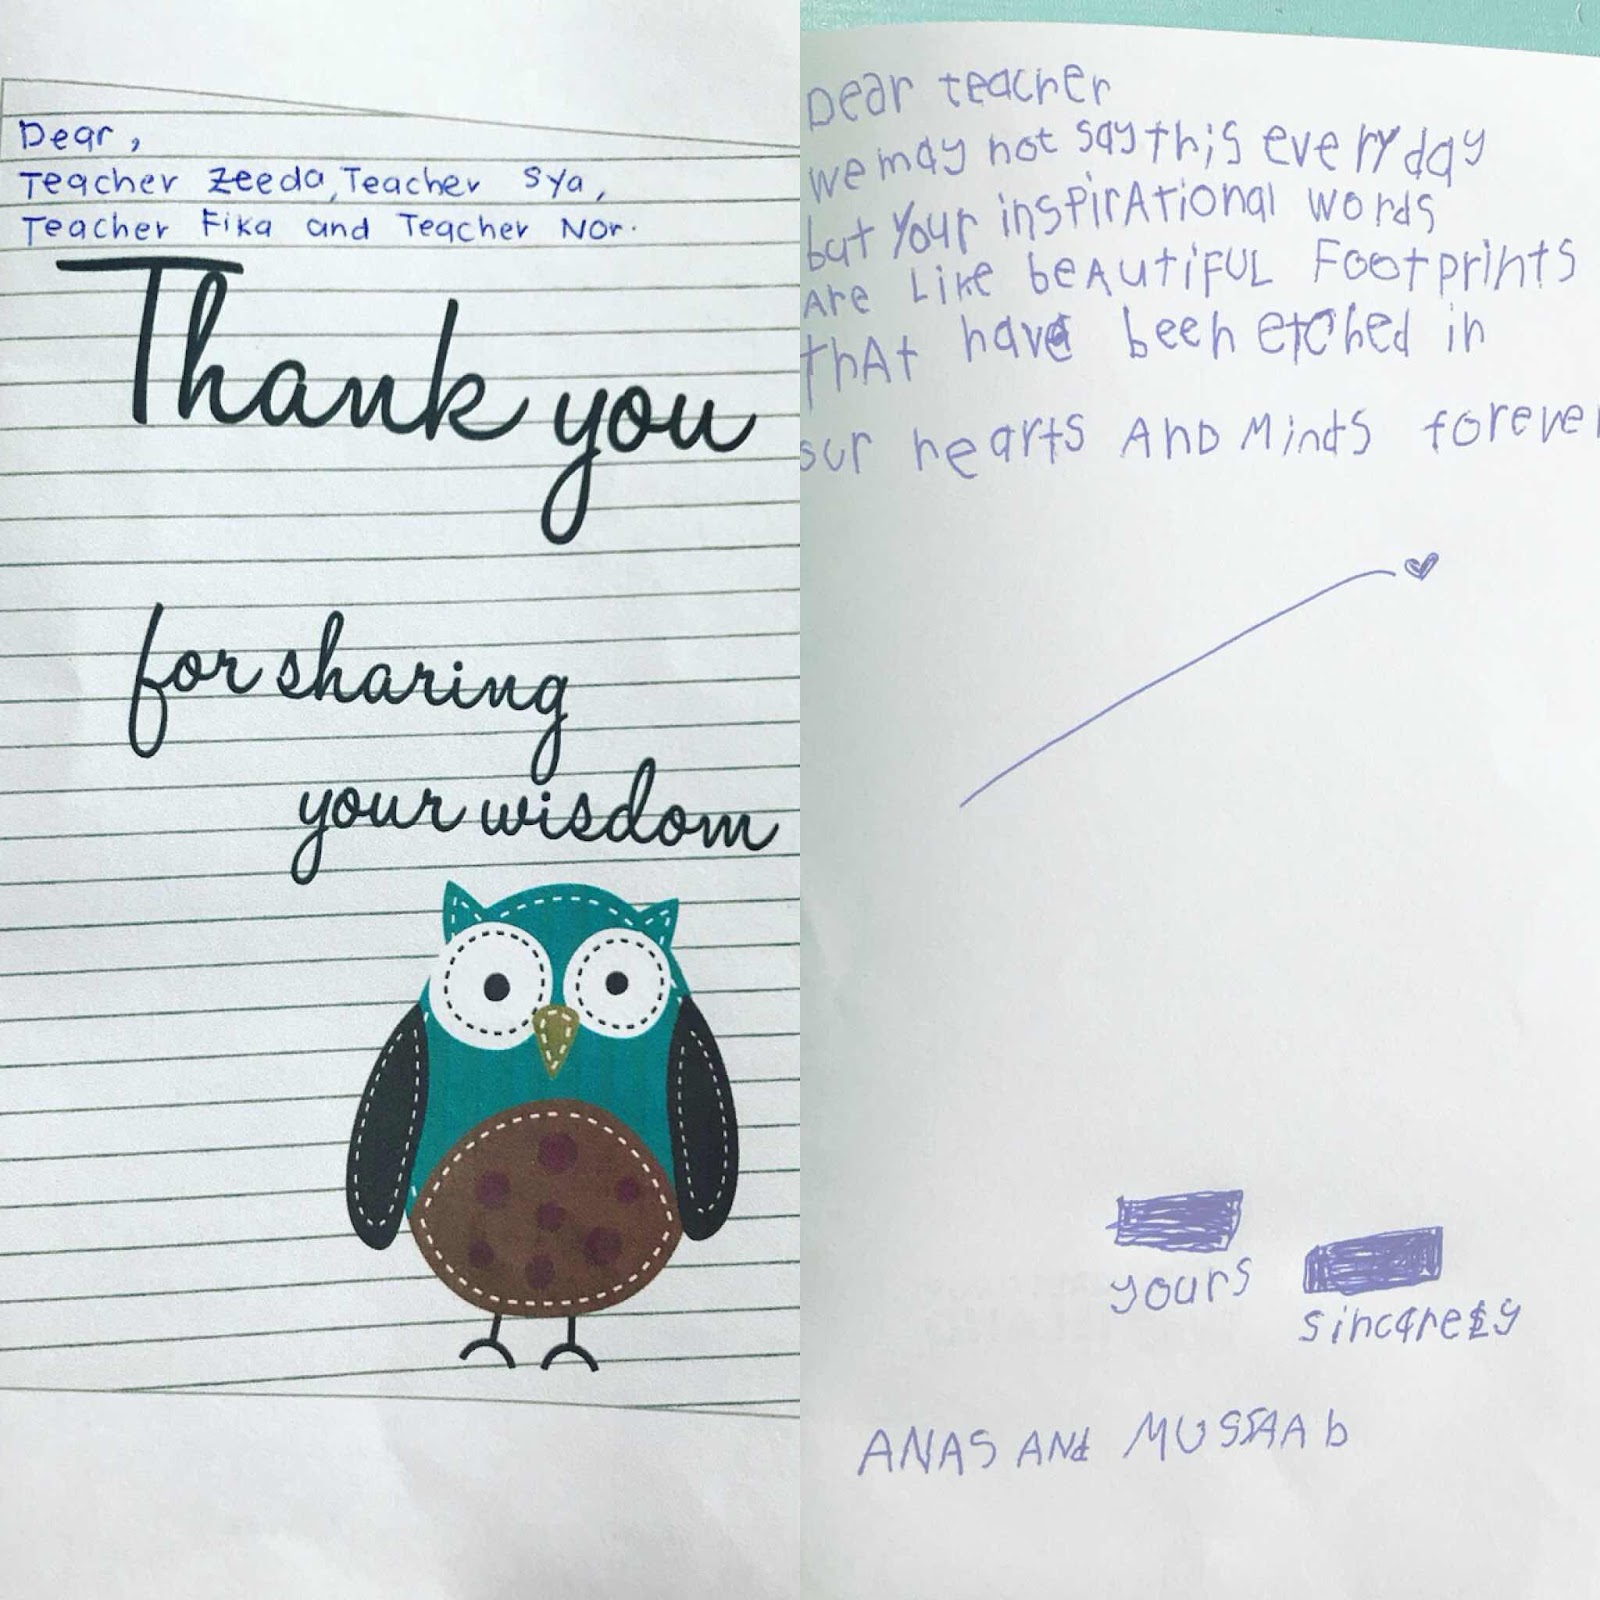 Dear,
Teacher Zeeda, Teacher Sya,
Teacher Fika and Teacher Nor.
Thank you
for sharing
your wisdom
Dear teacher
we may not say this every day
but Your inspirAtional words
Are Like beAutiFUL Footprints
thAt have been etched in
our hearts AND Minds forever
yours
sincerely
ANAS ANd MUSSAAb